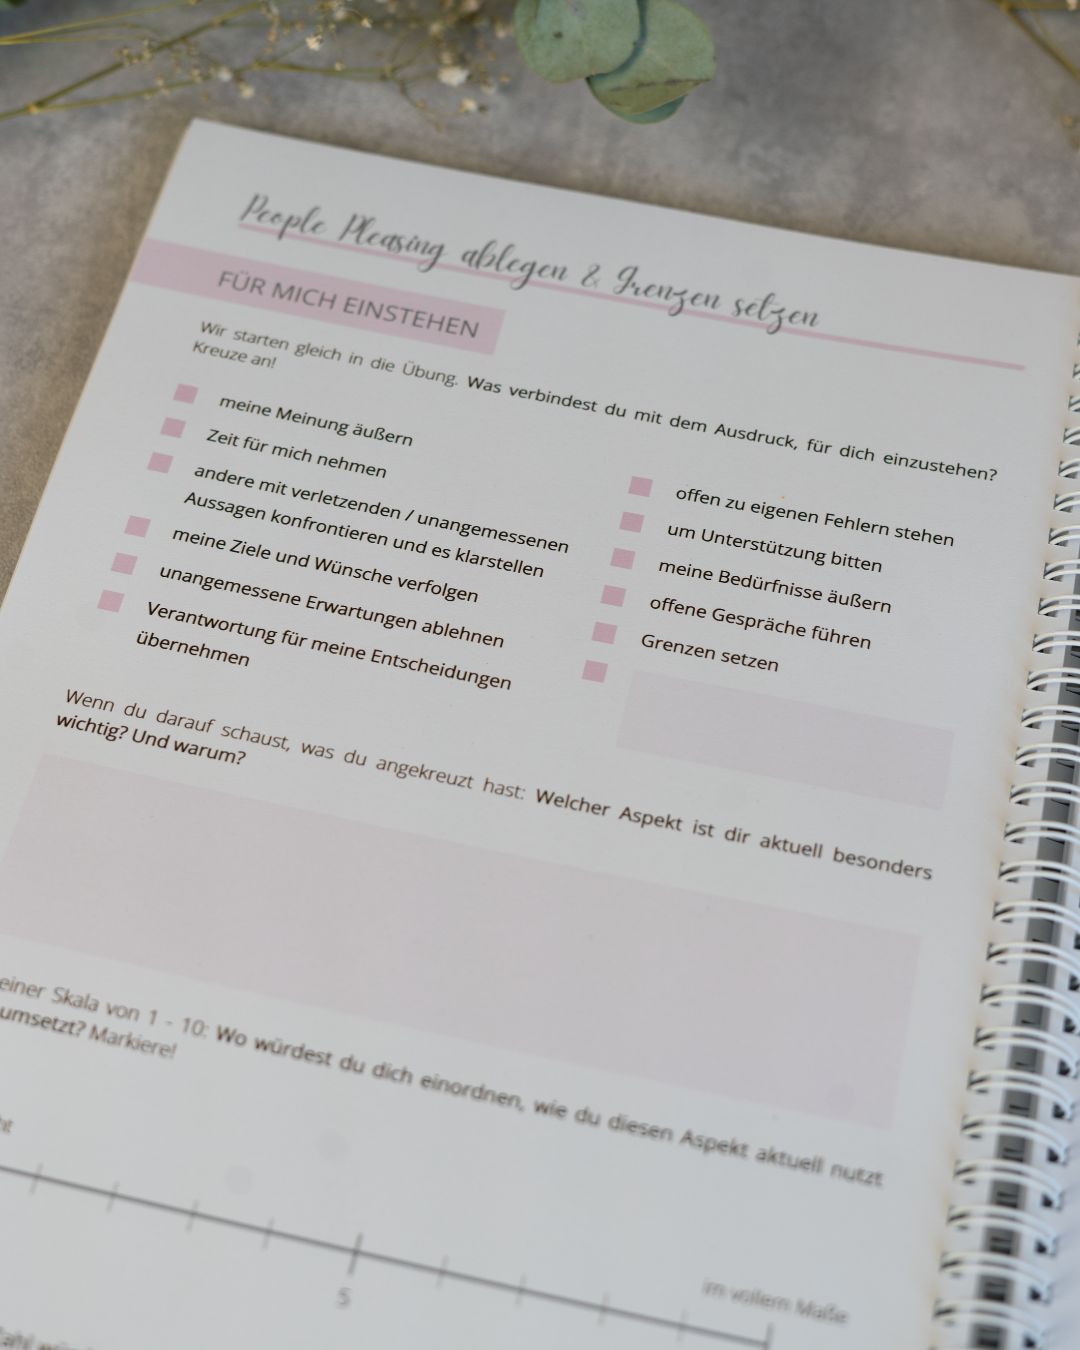 People Pleasing ablegen & Grenzen setzen
FÜR MICH EINSTEHEN
Wir starten gleich in die Übung. Was verbindest du mit dem Ausdruck, für dich einzustehen?
Kreuze an!
meine Meinung äußern
Zeit für mich nehmen
andere mit verletzenden / unangemessenen
Aussagen konfrontieren und es klarstellen
meine Ziele und Wünsche verfolgen
unangemessene Erwartungen ablehnen
Verantwortung für meine Entscheidungen
übernehmen
offen zu eigenen Fehlern stehen
um Unterstützung bitten
meine Bedürfnisse äußern
offene Gespräche führen
Grenzen setzen
Wenn du darauf schaust, was du angekreuzt hast: Welcher Aspekt ist dir aktuell besonders
wichtig? Und warum?
einer Skala von 1 - 10: Wo würdest du dich einordnen, wie du diesen Aspekt aktuell nutzt
umsetzt? Markiere!
5
im vollem Maße